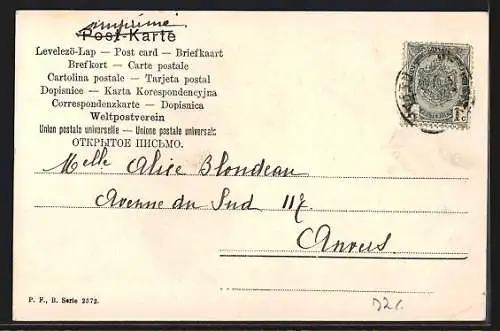 imprimé
Post-Karte
Levelező-Lap — Post card — Briefkaart
Brefkort — Carte postale
Cartolina postale — Tarjeta postal
Dopisnice — Karta Korespondencyjna
Correspondenzkarte — Dopisnica
Weltpostverein
Union postale universelle — Unione postale universale
ОТКРЫТОЕ ПИСЬМО.
1c
Melle Alice Blondeau
Avenue du Sud 117
Anvers.
P. F., B. Serie 2572.